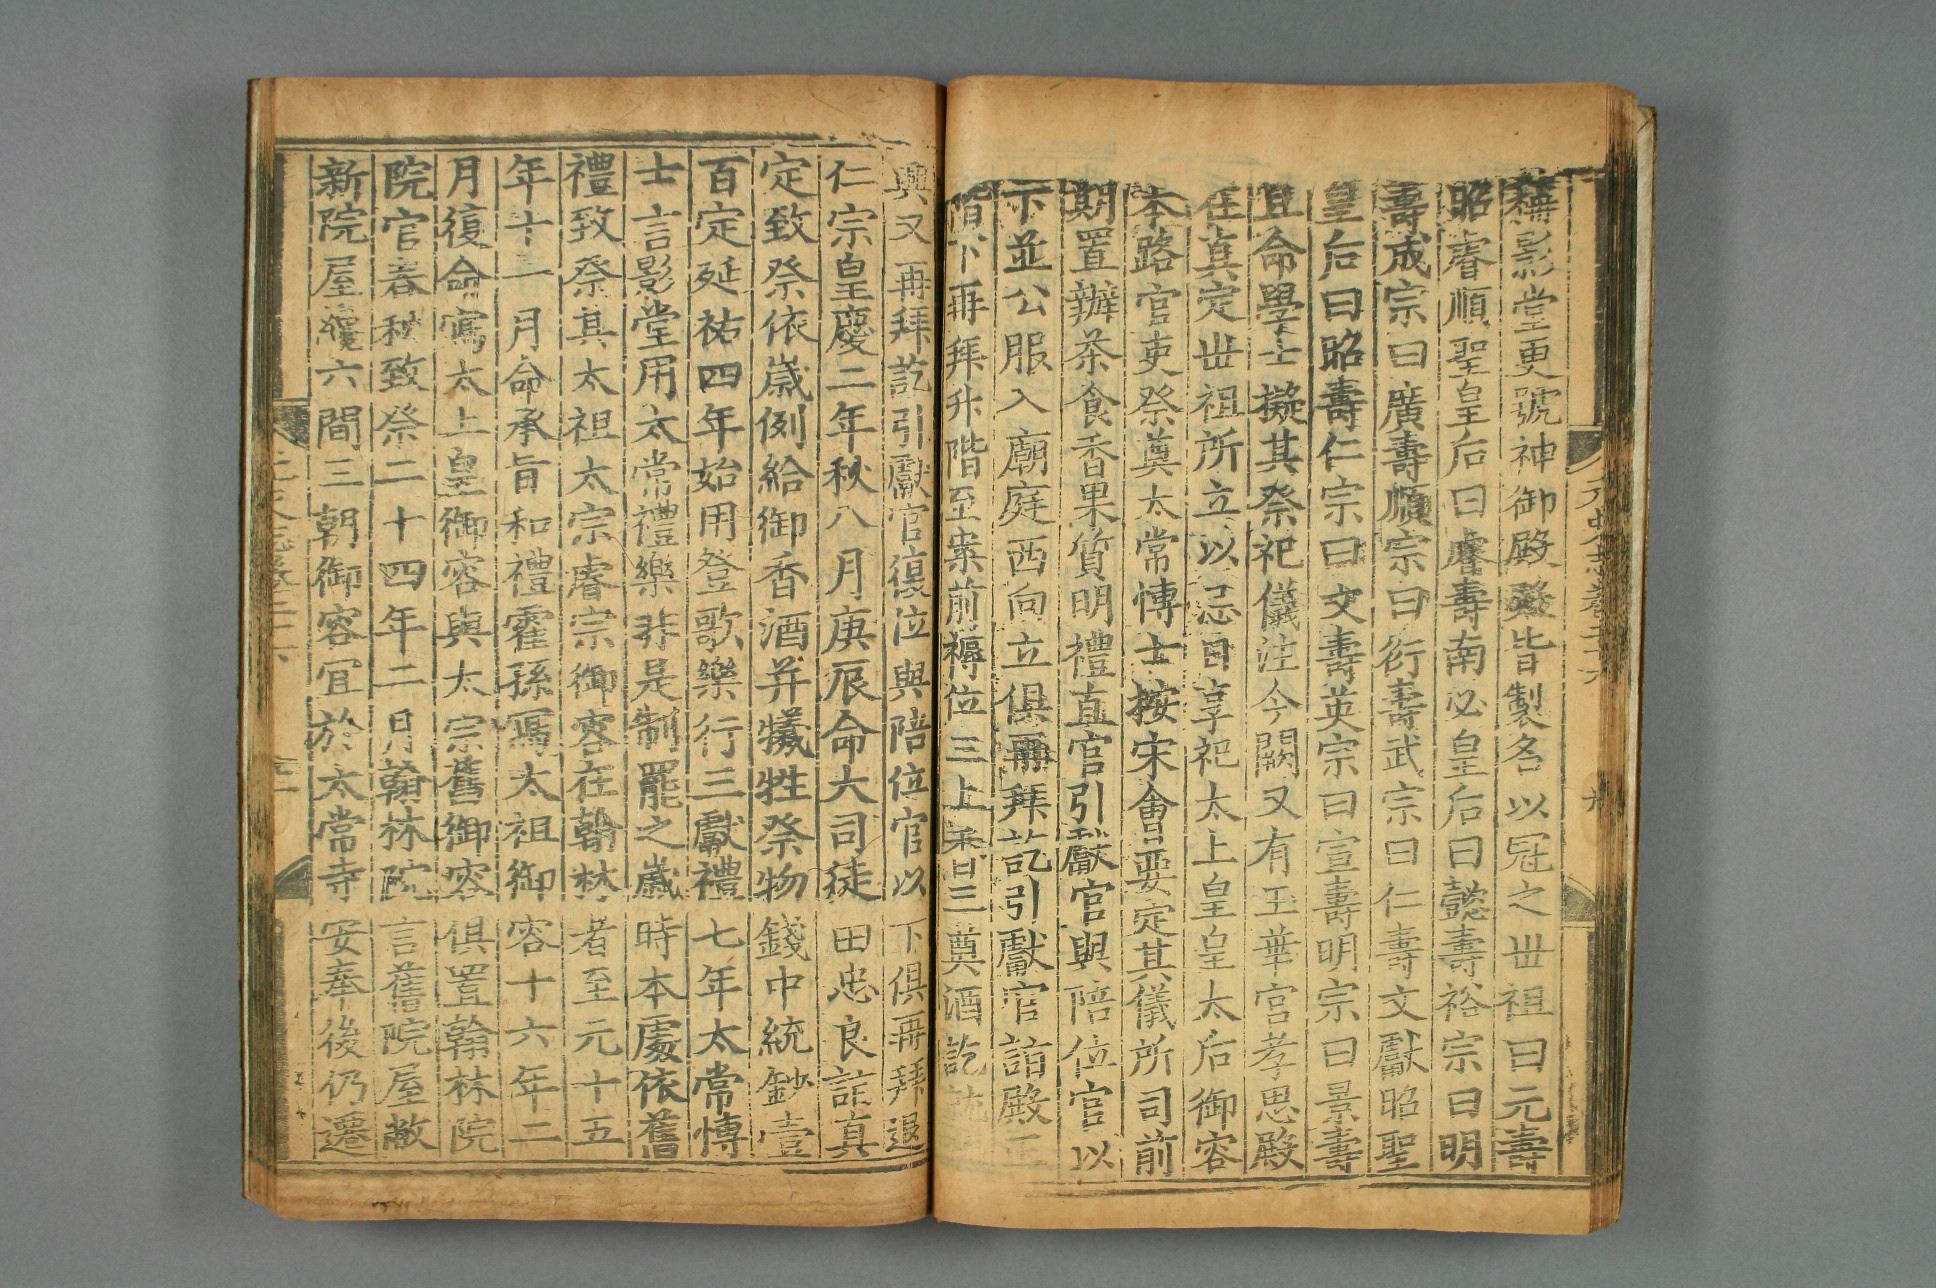 稱影堂更號神御殿殿皆製名以冠之世祖曰元壽
昭睿順聖皇后曰睿壽南必皇后曰懿壽裕宗曰明
壽成宗曰廣壽順宗曰衍壽武宗曰仁壽文獻昭聖
皇后曰昭壽仁宗曰文壽英宗曰宣壽明宗曰景壽
且命學士擬其祭祀儀注今闕又有玉華宮孝思殿
在真定世祖所立以忌日享祀太上皇皇太后御容
本路官吏祭奠太常博士按宋會要定其儀所司前
期置辦茶食香果質明禮直官引獻官與陪位官以
下並公服入廟庭西向立俱再拜訖引獻官詣殿正
階下再拜升階至案前褥位三上香三奠酒訖就
興又再拜訖引獻官復位與陪位官以下俱再拜退
仁宗皇慶二年秋八月庚辰命大司徒田忠良詣真
定致祭依歲例給御香酒并犧牲祭物錢中統鈔壹
百定延祐四年始用登歌樂行三獻禮七年太常博
士言影堂用太常禮樂非是制罷之歲時本處依舊
禮致祭其太祖太宗睿宗御容在翰林者至元十五
年十一月命承旨和禮霍孫寫太祖御容十六年二
月復命寫太上皇御容與太宗舊御容俱置翰林院
院官春秋致祭二十四年二月翰林院言舊院屋敝
新院屋纔六間三朝御容宜於太常寺安奉後仍遷
元史志卷二十六
九